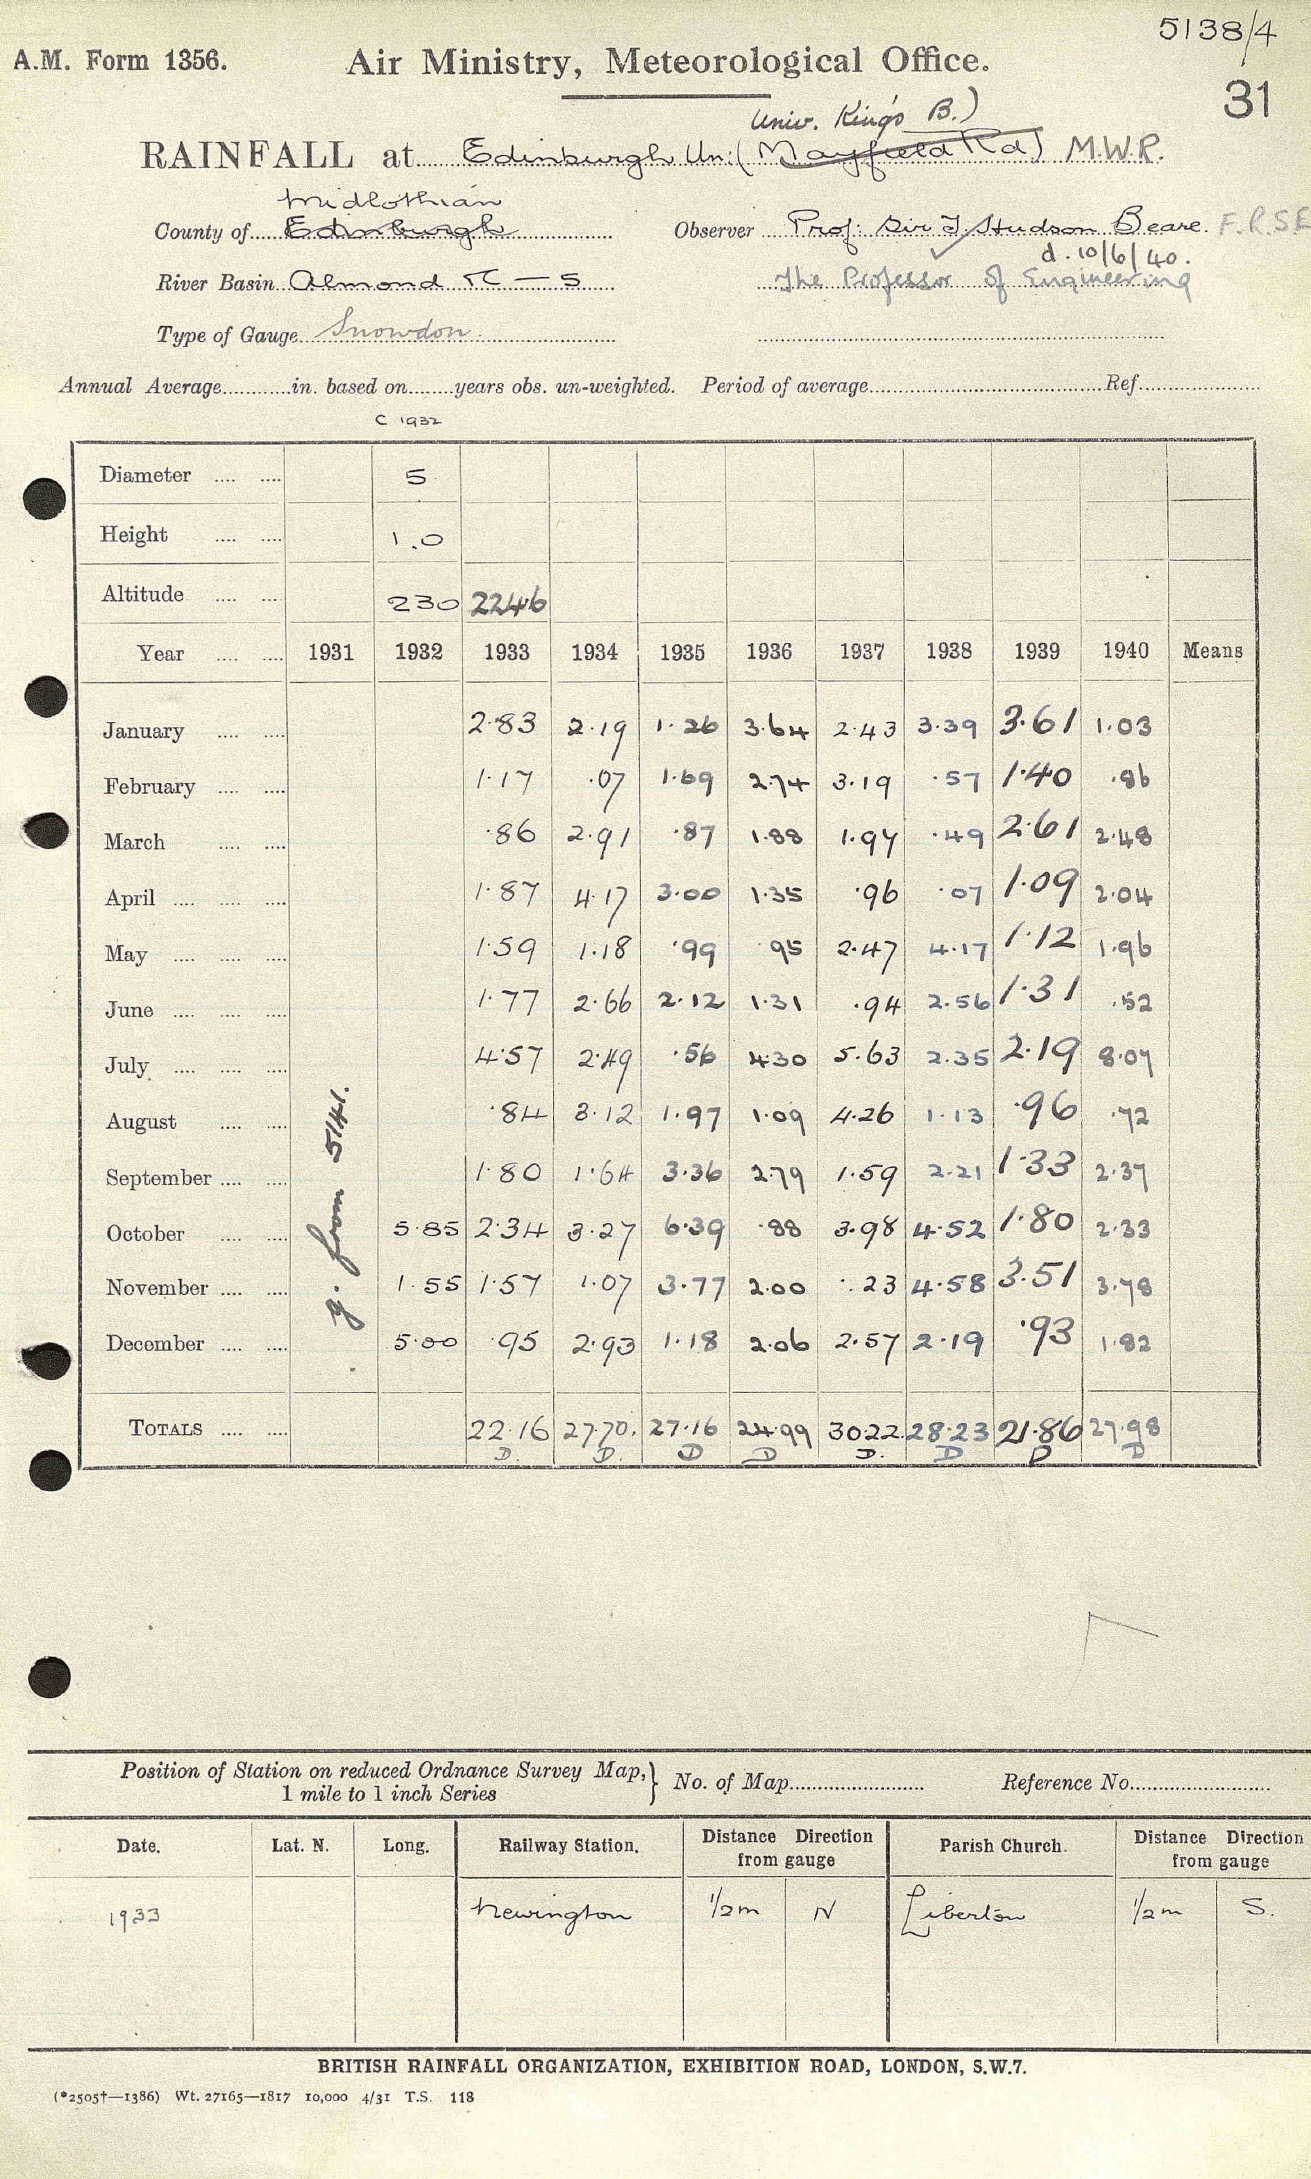 5138/4
A.M. Form 1356.
Air Ministry, Meteorological Office.
31
Univ. King's B.)
RAINFALL at Edinburgh Un: (Mayfield Rd) M.W.R.
Midlothian
County of Edinburgh Observer Prof: Sir T. Hudson Beare. F.R.S.E
d. 10/6/40.
River Basin Almond &c — 5 The Professor of Engineering
Type of Gauge Snowdon
Annual Average in. based on years obs. un-weighted. Period of average Ref.
C 1932
Diameter 5
Height 1.0
Altitude 230 224.6
Year 1931 1932 1933 1934 1935 1936 1937 1938 1939 1940 Means
January 2.83 2.19 1.26 3.64 2.43 3.39 3.61 1.03
February 1.17 .07 1.69 2.74 3.19 .57 1.40 .86
March .86 2.91 .87 1.88 1.97 .49 2.61 2.48
April 1.87 4.17 3.00 1.35 .96 .07 1.09 2.04
May 1.59 1.18 .99 .95 2.47 4.17 1.12 1.96
June 1.77 2.66 2.12 1.31 .94 2.56 1.31 .52
July 4.57 2.49 .56 4.30 5.63 2.35 2.19 8.07
August .84 3.12 1.97 1.09 4.26 1.13 .96 .72
September 1.80 1.64 3.36 2.79 1.59 2.21 1.33 2.37
October 5.85 2.34 3.27 6.39 .88 3.98 4.52 1.80 2.33
November 1.55 1.57 1.07 3.77 2.00 .23 4.58 3.51 3.78
December 5.00 .95 2.93 1.18 2.06 2.57 2.19 .93 1.82
g. from 5141.
TOTALS 22.16 27.70. 27.16 24.99 30.22. 28.23 21.86 27.98
D. D. D D D. D D D
Position of Station on reduced Ordnance Survey Map, } No. of Map Reference No.
1 mile to 1 inch Series
Date. Lat. N. Long. Railway Station. Distance Direction Parish Church. Distance Direction
from gauge from gauge
1933 Newington 1/2 m N Liberton 1/2 m S.
BRITISH RAINFALL ORGANIZATION, EXHIBITION ROAD, LONDON, S.W.7.
(*2505†—1386) Wt. 27165—1817 10,000 4/31 T.S. 118